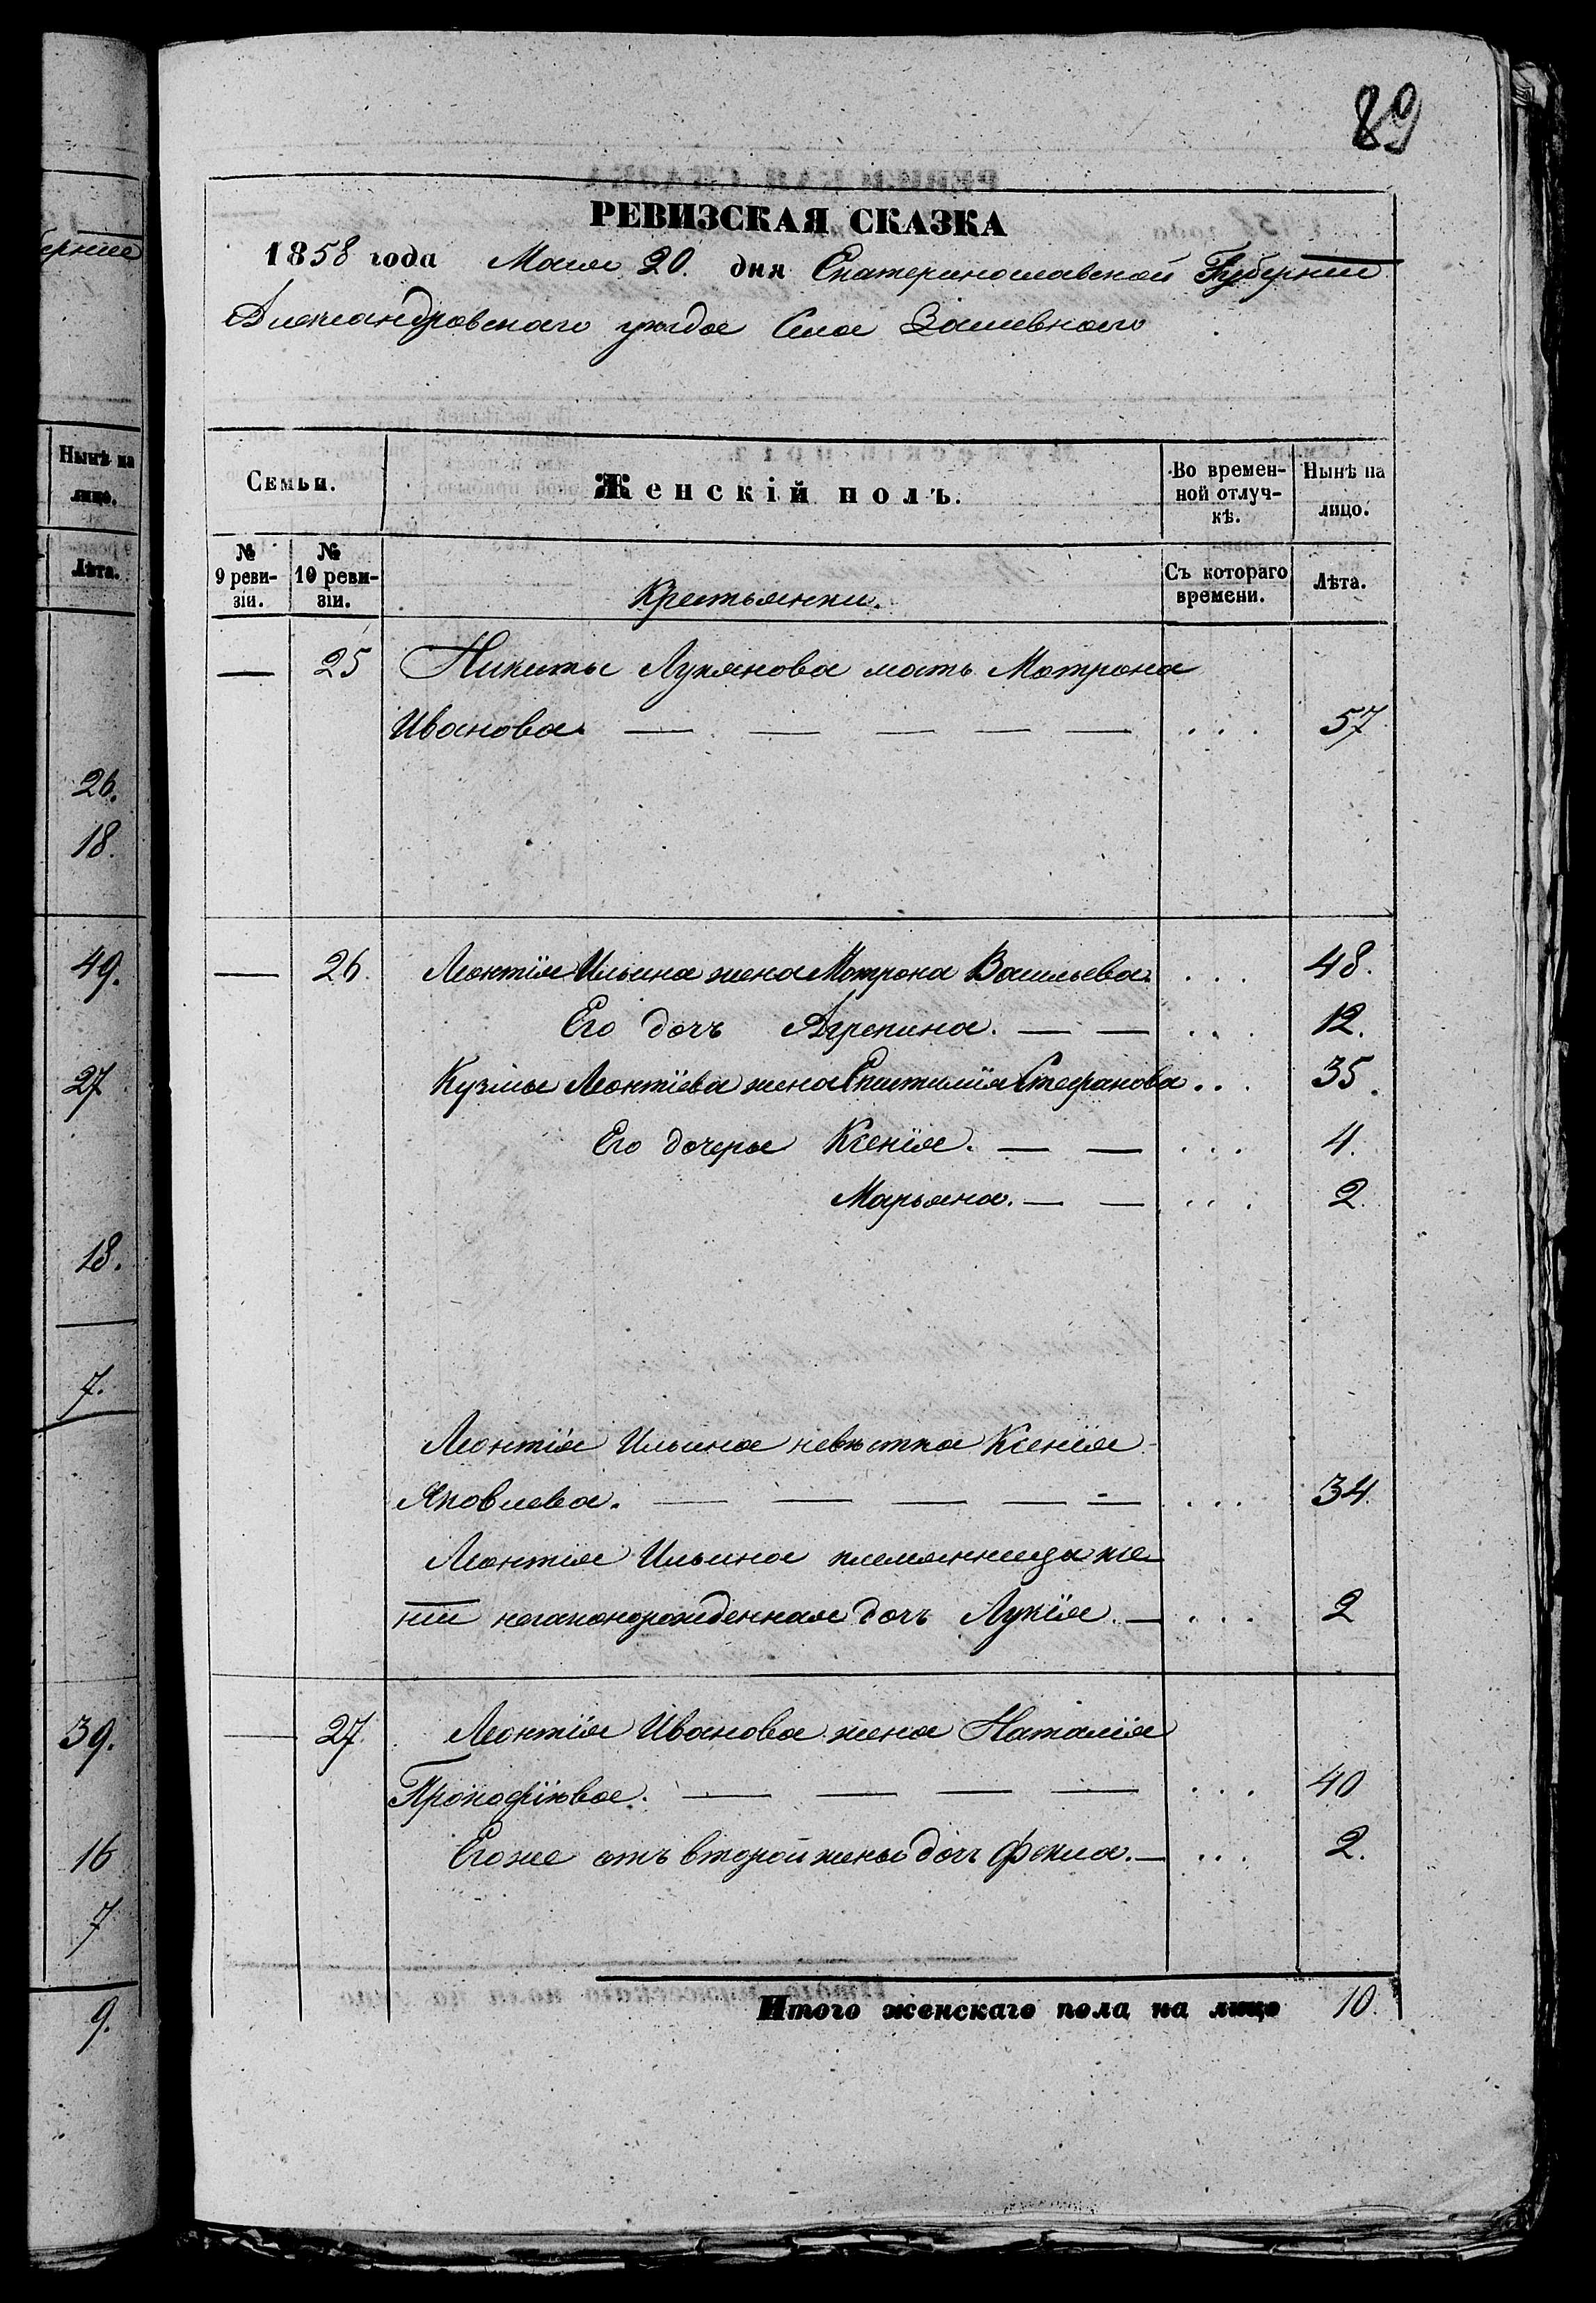 89
РЕВИЗСКАЯ СКАЗКА
1858 года Мая 20. дня Екатеринославской Губерніи
Александровскаго уѣзда Села Заливнаго
Семьи.
Женскій полъ.
Во времен-
ной отлуч-
кѣ.
Нынѣ на
лицо.
№
9 реви-
зіи.
№
10 реви-
зіи.
Крестьянки.
Съ котораго
времени.
Лѣта.
— 25 Никиты Лукянова мать Матрона
Иванова. — — — — — . . . 57
— 26. Леонтія Ильина жена Матрона Васильева. . . . 48.
Его дочъ Агрепина. — — . . . 12.
Кузмы Леонтіева жена Епистимія Стефанова . . . 35.
Его дочеры Ксенія. — — . . . 4.
Марьяна. — — . . . 2.
Леонтія Ильина невѣстка Ксенія
Яковлева. — — — — — . . . 34.
Леонтія Ильина племянница ксе-
ніи незаконорожденная дочъ Лукія. — . . . 2
— 27. Леонтія Иванова жена Наталія
Прокофіюва. — — — — . . . 40
Его же отъ второй жены дочъ Фекла. — . . . 2.
Итого женскаго пола на лицо 10.
ерніи
Нынѣ на
лицо.
Лѣта.
26.
18.
49.
27
18.
7.
39.
16
7
9.